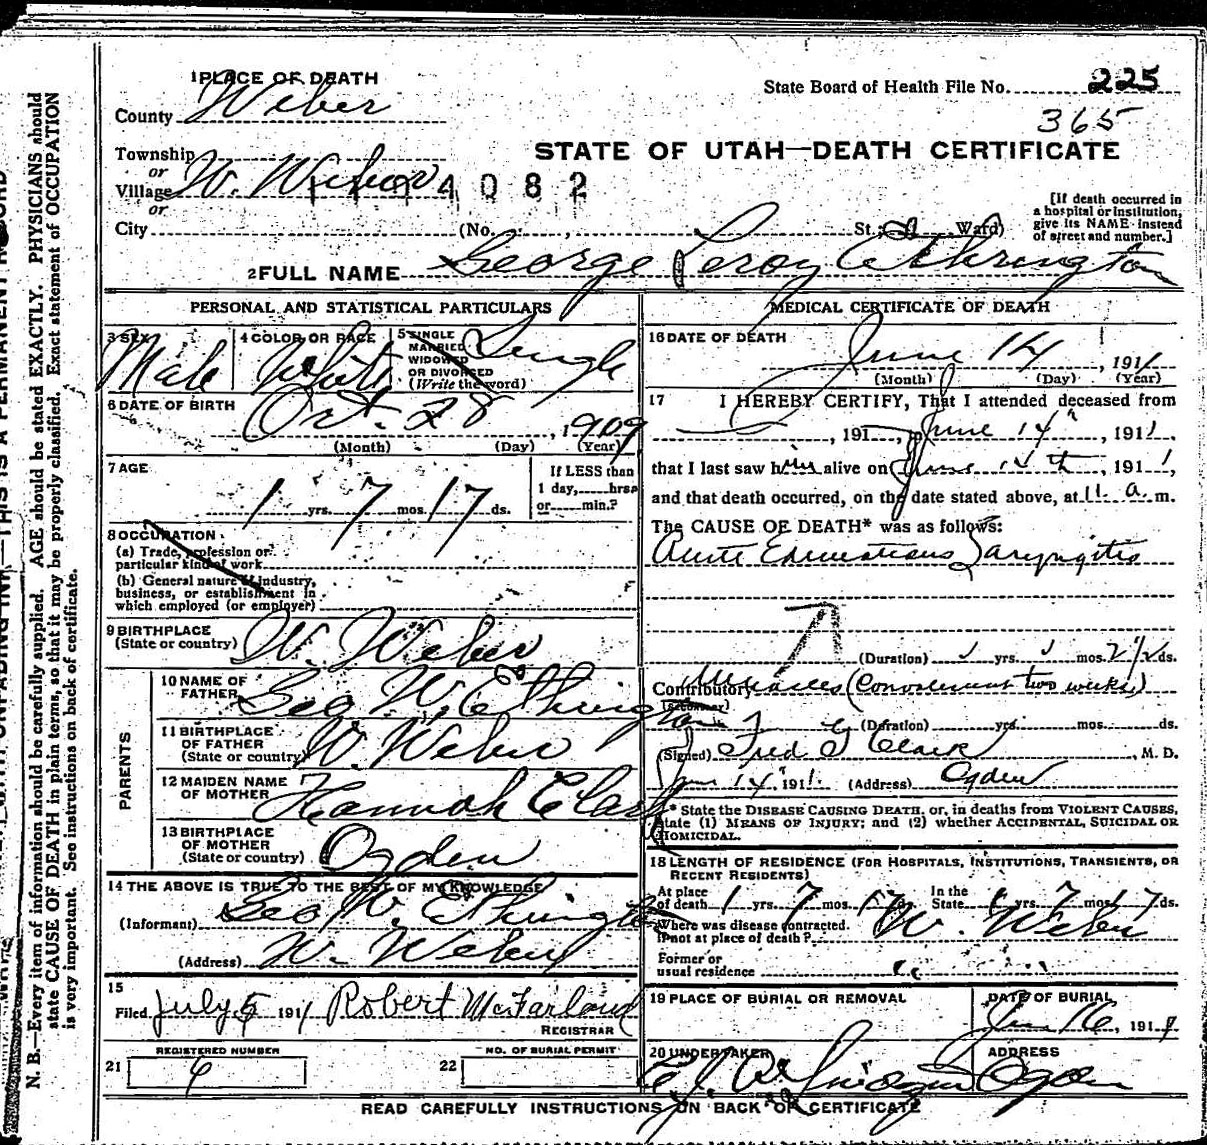 1 PLACE OF DEATH
County Weber
State Board of Health File No. 225
365
STATE OF UTAH—DEATH CERTIFICATE
Township
or
Village W. Weber
4082
or
City (No. St.; Ward)
[If death occurred in
a hospital or institution,
give its NAME instead
of street and number.]
2 FULL NAME George Leroy Ethrington
PERSONAL AND STATISTICAL PARTICULARS
3 SEX Male
4 COLOR OR RACE White
5 SINGLE
MARRIED
WIDOWED
OR DIVORCED
(Write the word) Single
6 DATE OF BIRTH Oct. 28, 1909
(Month) (Day) (Year)
7 AGE
1 yrs. 7 mos. 17 ds.
If LESS than
1 day,.....hrs.
or.....min.?
8 OCCUPATION
(a) Trade, profession or
particular kind of work
(b) General nature of industry,
business, or establishment in
which employed (or employer)
9 BIRTHPLACE
(State or country) W. Weber
PARENTS
10 NAME OF
FATHER Geo W. Ethrington
11 BIRTHPLACE
OF FATHER
(State or country) W. Weber
12 MAIDEN NAME
OF MOTHER Hannah E Clark
13 BIRTHPLACE
OF MOTHER
(State or country) Ogden
14 THE ABOVE IS TRUE TO THE BEST OF MY KNOWLEDGE
(Informant) Geo W. Ethrington
(Address) W. Weber
15
Filed July 5 1911 Robert McFarland
REGISTRAR
REGISTERED NUMBER
21 6
NO. OF BURIAL PERMIT
22
MEDICAL CERTIFICATE OF DEATH
16 DATE OF DEATH
June 14, 1911
(Month) (Day) (Year)
17 I HEREBY CERTIFY, That I attended deceased from
, 191 , June 14", 1911,
that I last saw him alive on June 14th, 1911,
and that death occurred, on the date stated above, at 11 a. m.
The CAUSE OF DEATH* was as follows:
Acute Edematious Laryngitis
(Duration) yrs. mos. 2 1/2 ds.
Contributory Measles (Convalescent two weeks)
(Secondary)
(Duration) yrs. mos. ds.
(Signed) Fred G Clark, M. D.
June 14, 1911. (Address) Ogden
* State the DISEASE CAUSING DEATH, or, in deaths from VIOLENT CAUSES,
state (1) MEANS OF INJURY; and (2) whether ACCIDENTAL, SUICIDAL OR
HOMICIDAL.
18 LENGTH OF RESIDENCE (FOR HOSPITALS, INSTITUTIONS, TRANSIENTS, OR
RECENT RESIDENTS)
At place
of death 1 yrs. 7 mos. 17 ds. In the
State 1 yrs. 7 mos. 17 ds.
Where was disease contracted,
if not at place of death? W. Weber
Former or
usual residence " "
19 PLACE OF BURIAL OR REMOVAL
DATE OF BURIAL
Jun 16, 1911
20 UNDERTAKER
ADDRESS
Ogden
READ CAREFULLY INSTRUCTIONS ON BACK OF CERTIFICATE
N. B.—Every item of information should be carefully supplied. AGE should be stated EXACTLY. PHYSICIANS should
state CAUSE OF DEATH in plain terms, so that it may be properly classified. Exact statement of OCCUPATION
is very important. See instructions on back of certificate.